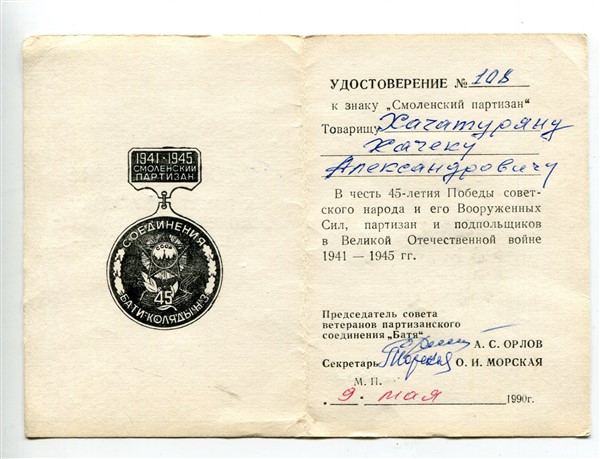 1941-1945
СМОЛЕНСКИЙ
ПАРТИЗАН
СОЕДИНЕНИЯ
СССР
45
БАТИ·КОЛЯДЫ·
УДОСТОВЕРЕНИЕ № 108
к знаку „Смоленский партизан"
Товарищу Хачатуряну
Хачеку
Александровичу
В честь 45-летия Победы совет-
ского народа и его Вооруженных
Сил, партизан и подпольщиков
в Великой Отечественной войне
1941 — 1945 гг.
Председатель совета
ветеранов партизанского
соединения „Батя"
А. С. ОРЛОВ
Секретарь О. И. МОРСКАЯ
М. П.
„9" мая 1990г.